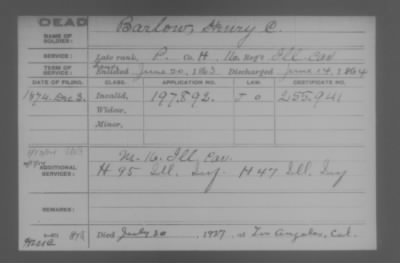 DEAD
NAME OF SOLDIER: Barlow, Henry C.
SERVICE: Late rank, P. Co. H, 16 Reg't Ill Cav
TERM OF SERVICE: Enlisted June 20, 1863 Discharged June 14, 1864
DATE OF FILING. CLASS. APPLICATION NO. LAW. CERTIFICATE NO.
1874 Dec 3. Invalid, 197.892. 255.941
Widow,
Minor,
ADDITIONAL SERVICES: M. 16. Ill. Cav.
H 95 Ill. Inf. H 47 Ill. Inf
REMARKS:
Died July 20, 1927, at Los Angeles, Cal.